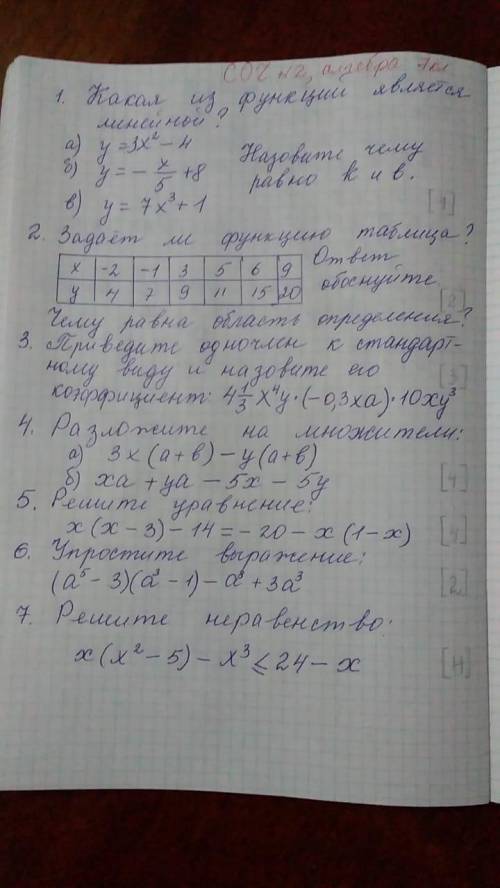 СОЧ №2, алгебра 7кл
1. Какая из функции является
линейной?
а) y = 3x² − 4
б) y = − x/5 + 8
Назовите чему
равно k и в.
в) y = 7x³ + 1
[1]
2. Задаёт ли функцию таблица?
x -2 -1 3 5 6 9
y 4 7 9 11 15 20
Ответ
обоснуйте.
[2]
Чему равна область определения?
3. Приведите одночлен к стандарт-
ному виду и назовите его
[3]
коэффициент: 4 1/3 x⁴y · (−0,3xa) · 10xy³
4. Разложите на множители:
а) 3x(a+b) − y(a+b)
б) xa + ya − 5x − 5y
[4]
5. Решите уравнение:
x(x − 3) − 14 = − 20 − x(1 − x)
[4]
6. Упростите выражение:
(a⁵ − 3)(a³ − 1) − a⁸ + 3a³
[2]
7. Решите неравенство:
x(x² − 5) − x³ ⩽ 24 − x
[4]